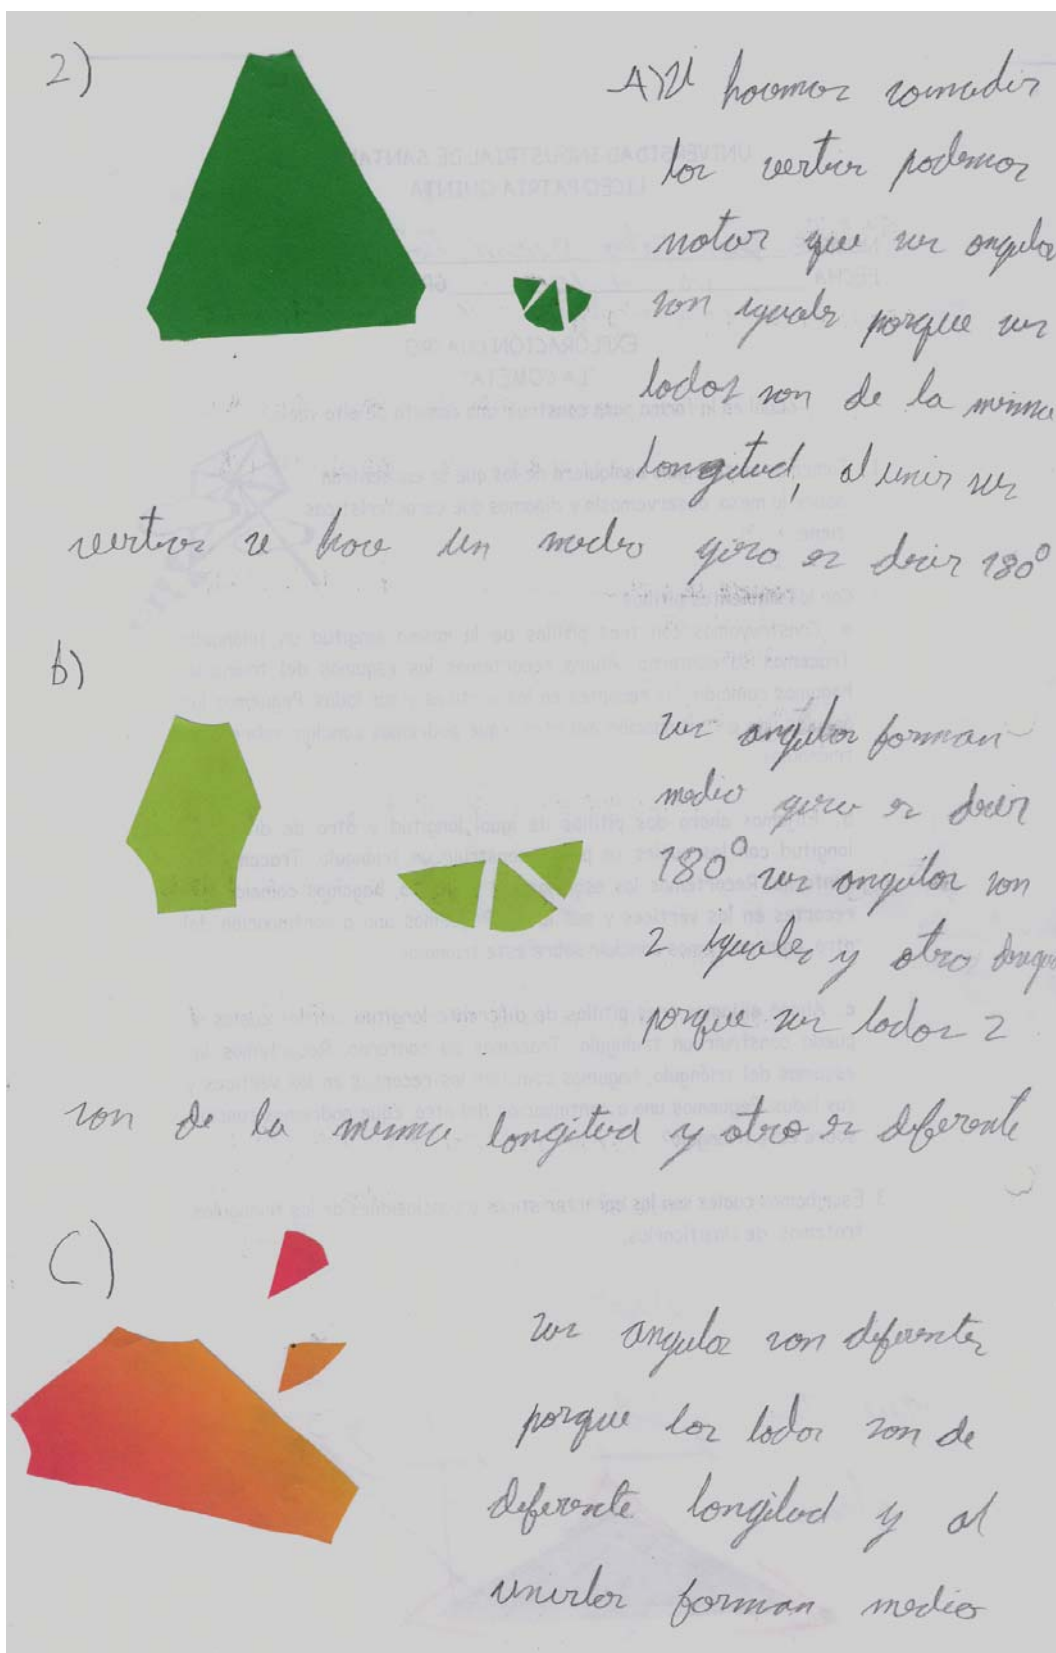 2)
A) Si hacemos comadir
los vertices podemos
notar que sus angulos
son iguales porque sus
lados son de la misma
longitud, al unir sus
vertices se hace un medio giro es decir 180°
b)
sus angulos forman
medio giro es decir
180° sus angulos son
2 iguales y otro
porque sus lados 2
son de la misma longitud y otro es diferente
C)
sus angulos son diferentes
porque los lados son de
diferente longitud y al
unirlos forman medio